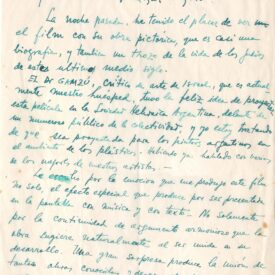 La noche pasada, he tenido el placer de ver un
el film con su obra pictorica, que es casi una
biografia, y tambien un trozo de la vida de los judios
de este ultimo medio siglo.
El Dr GAMZU, Critico de arte de Israel, que es actual-
mente nuestro huésped, tuvo la feliz idea de
esta pelicula en la Sociedad Hebraica Argentina, delante de
un numeroso público de la colectividad, y yo estoy
de que sea proyectada para los pintores argentinos en
el ambiente de los plásticos, habiendo ya hablado con
de los mejores de nuestros artistas,
Le la emocion que me produjo este film
no solo, el efecto especial que produce por ser presentada
en la pantalla con música y con texto. No solamente
por la continuidad de argumento armonioso que la
obra sugiere naturalmente al ser unida en su
desarrollo. Una gran sorpresa produce la unión de
tantas obras conocidas y